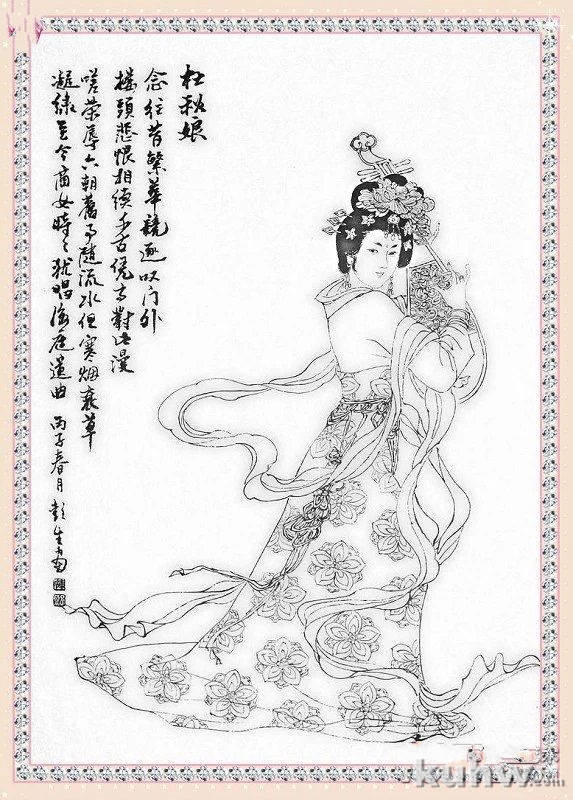 杜秋娘
念往昔繁華競逐叹门外
樓頭悲恨相續千古凭高對此漫
嗟榮辱六朝舊事隨流水但寒烟衰草
凝綠至今商女時〻猶唱後庭遺曲 丙子春月